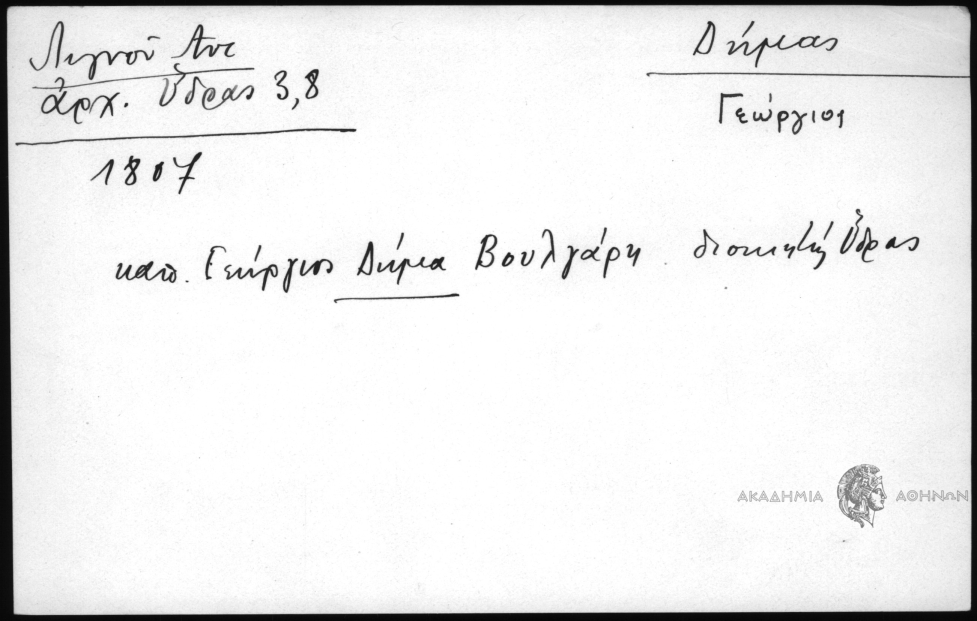 Λιγνού Αντ
ἀρχ. Ὕδρας 3,8
1807
Δήμας
Γεώργιος
καπ. Γεώργιος Δήμα Βουλγάρη διοικητὴ Ὕδρας
ΑΚΑΔΗΜΙΑ ΑΘΗΝΩΝ